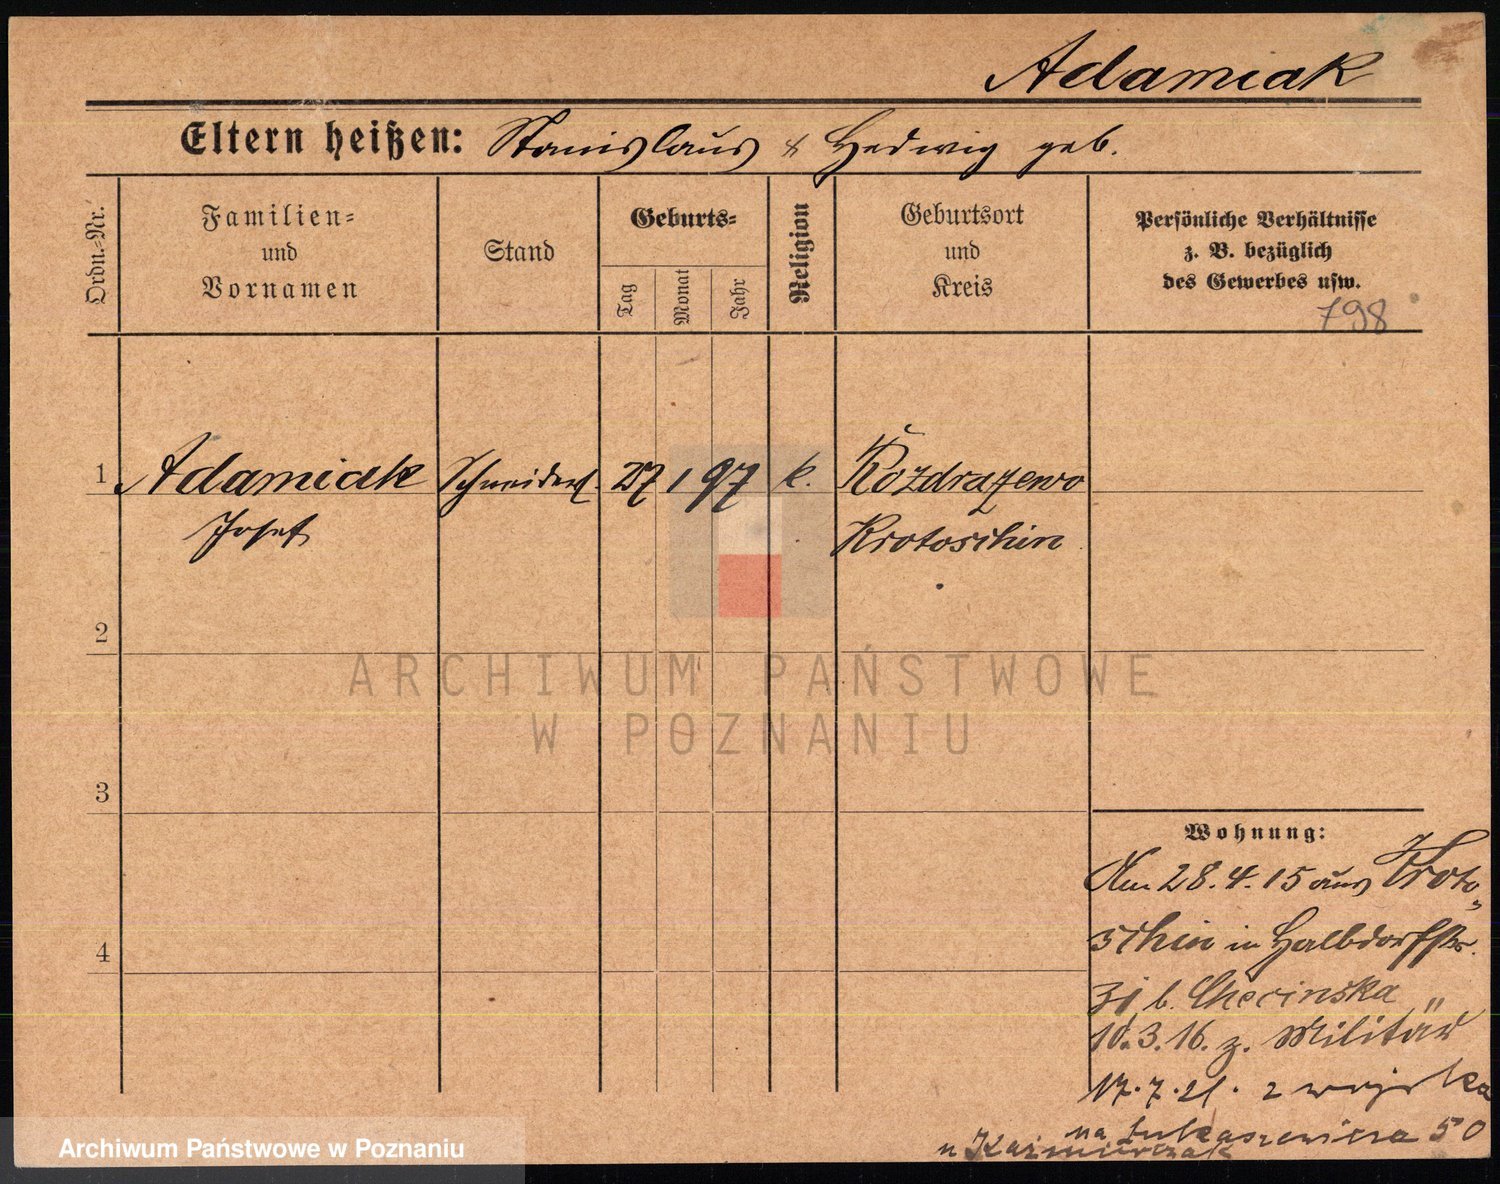 Adamiak
Eltern heißen: Stanislaus & Hedwig geb.
Ordn.=Nr.
Familien=
und
Vornamen
Stand
Geburts=
Tag
Monat
Jahr
Religion
Geburtsort
und
Kreis
Persönliche Verhältnisse
z. B. bezüglich
des Gewerbes usw.
798
1 Adamiak Schneiderl. 27 1 97 k. Rozdrazewo
Josef Krotoschin
2
3
4
Wohnung:
Am 28.4.15 aus Kroto=
schin in Halbdorfstr.
31 b. Checinska
10.3.16. z. Militär
17.7.21. z wojska
na Łukaszewicza 50
u Kaźmierczak
ARCHIWUM PAŃSTWOWE
W POZNANIU
Archiwum Państwowe w Poznaniu